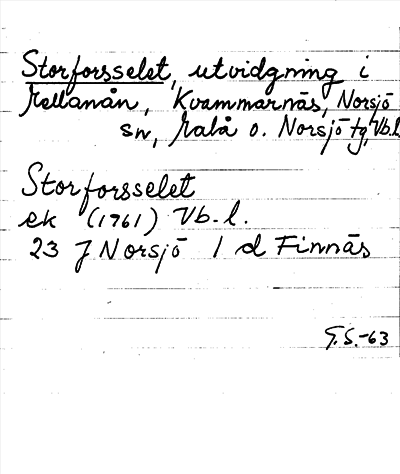 Storforsselet, utvidgning i
Mellanån, Kvammarnäs, Norsjö
sn, Malå o. Norsjö tg, Vb.l.
Storforsselet
ek (1961) Vb.l.
23 J Norsjö 1 d Finnäs
G.S.-63